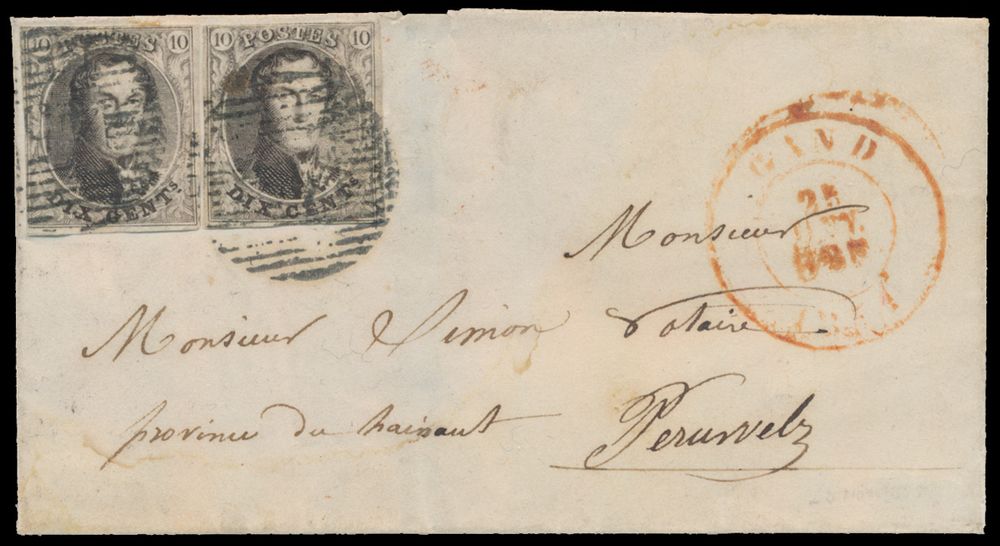 10 POSTES 10
DIX CENTS
10 POSTES 10
DIX CENTS
GAND
25
Monsieur
Monsieur Simon Notaire
province du hainaut
Peruwelz